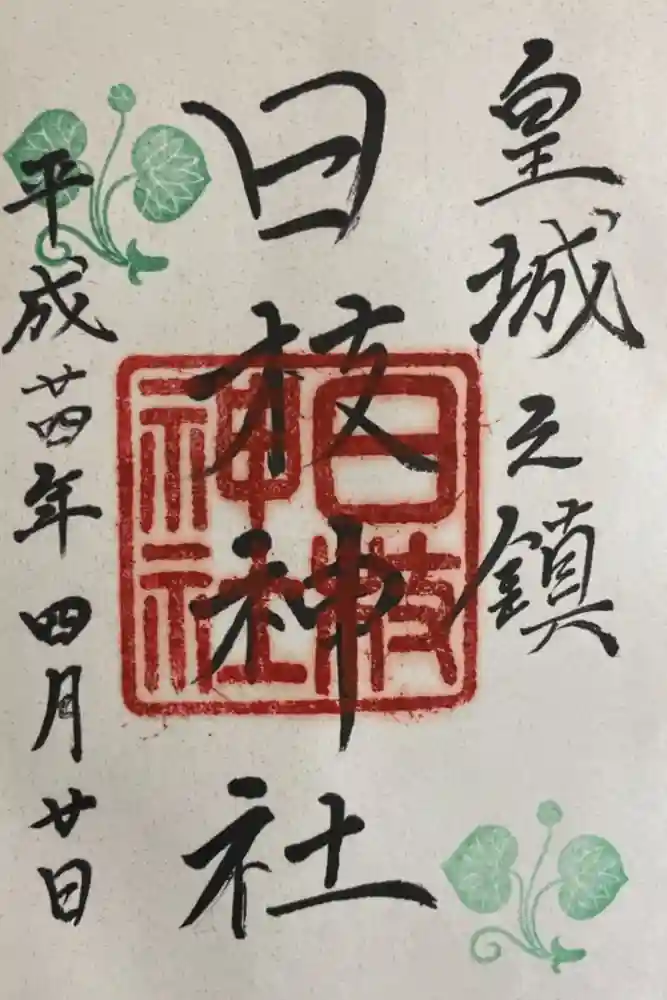 皇城之鎮
日枝神社
日枝
神社
平成廿四年四月廿日